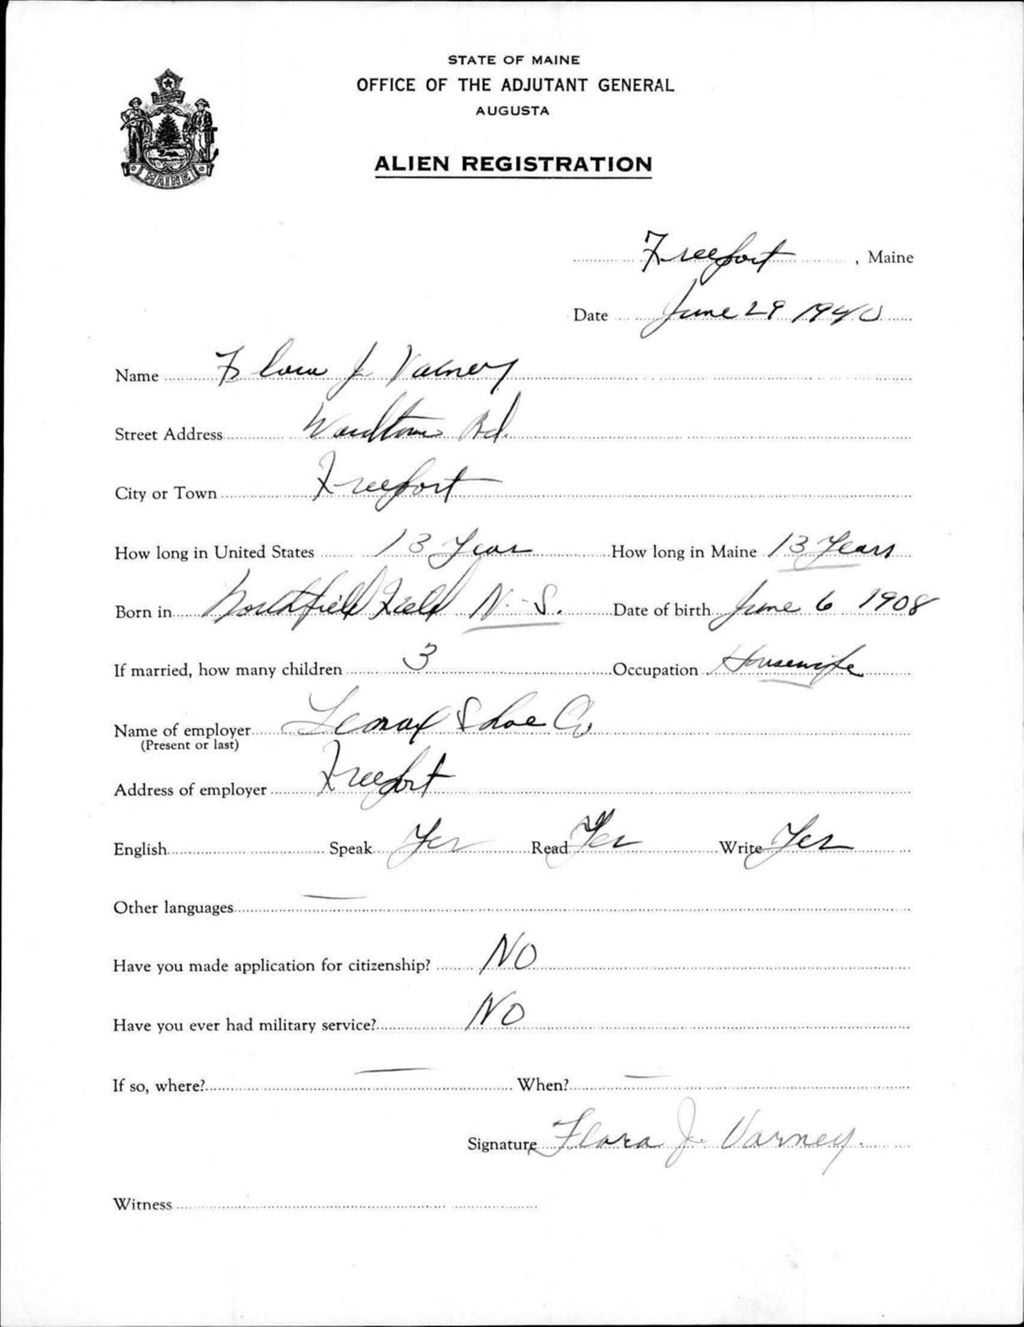 STATE OF MAINE
OFFICE OF THE ADJUTANT GENERAL
AUGUSTA
ALIEN REGISTRATION
MAINE
Freeport, Maine
Date June 29 1940
Name Flora J. Varney
Street Address Wardtown Rd.
City or Town Freeport
How long in United States 13 Years How long in Maine 13 Years
Born in Northfield Field N-S. Date of birth June 6 1908
If married, how many children 3 Occupation Housewife
Name of employer Shoe Co
(Present or last)
Address of employer Freeport
English Speak Yes Read Yes Write Yes
Other languages —
Have you made application for citizenship? No
Have you ever had military service? No
If so, where? — When? —
Signature Flora J. Varney.
Witness